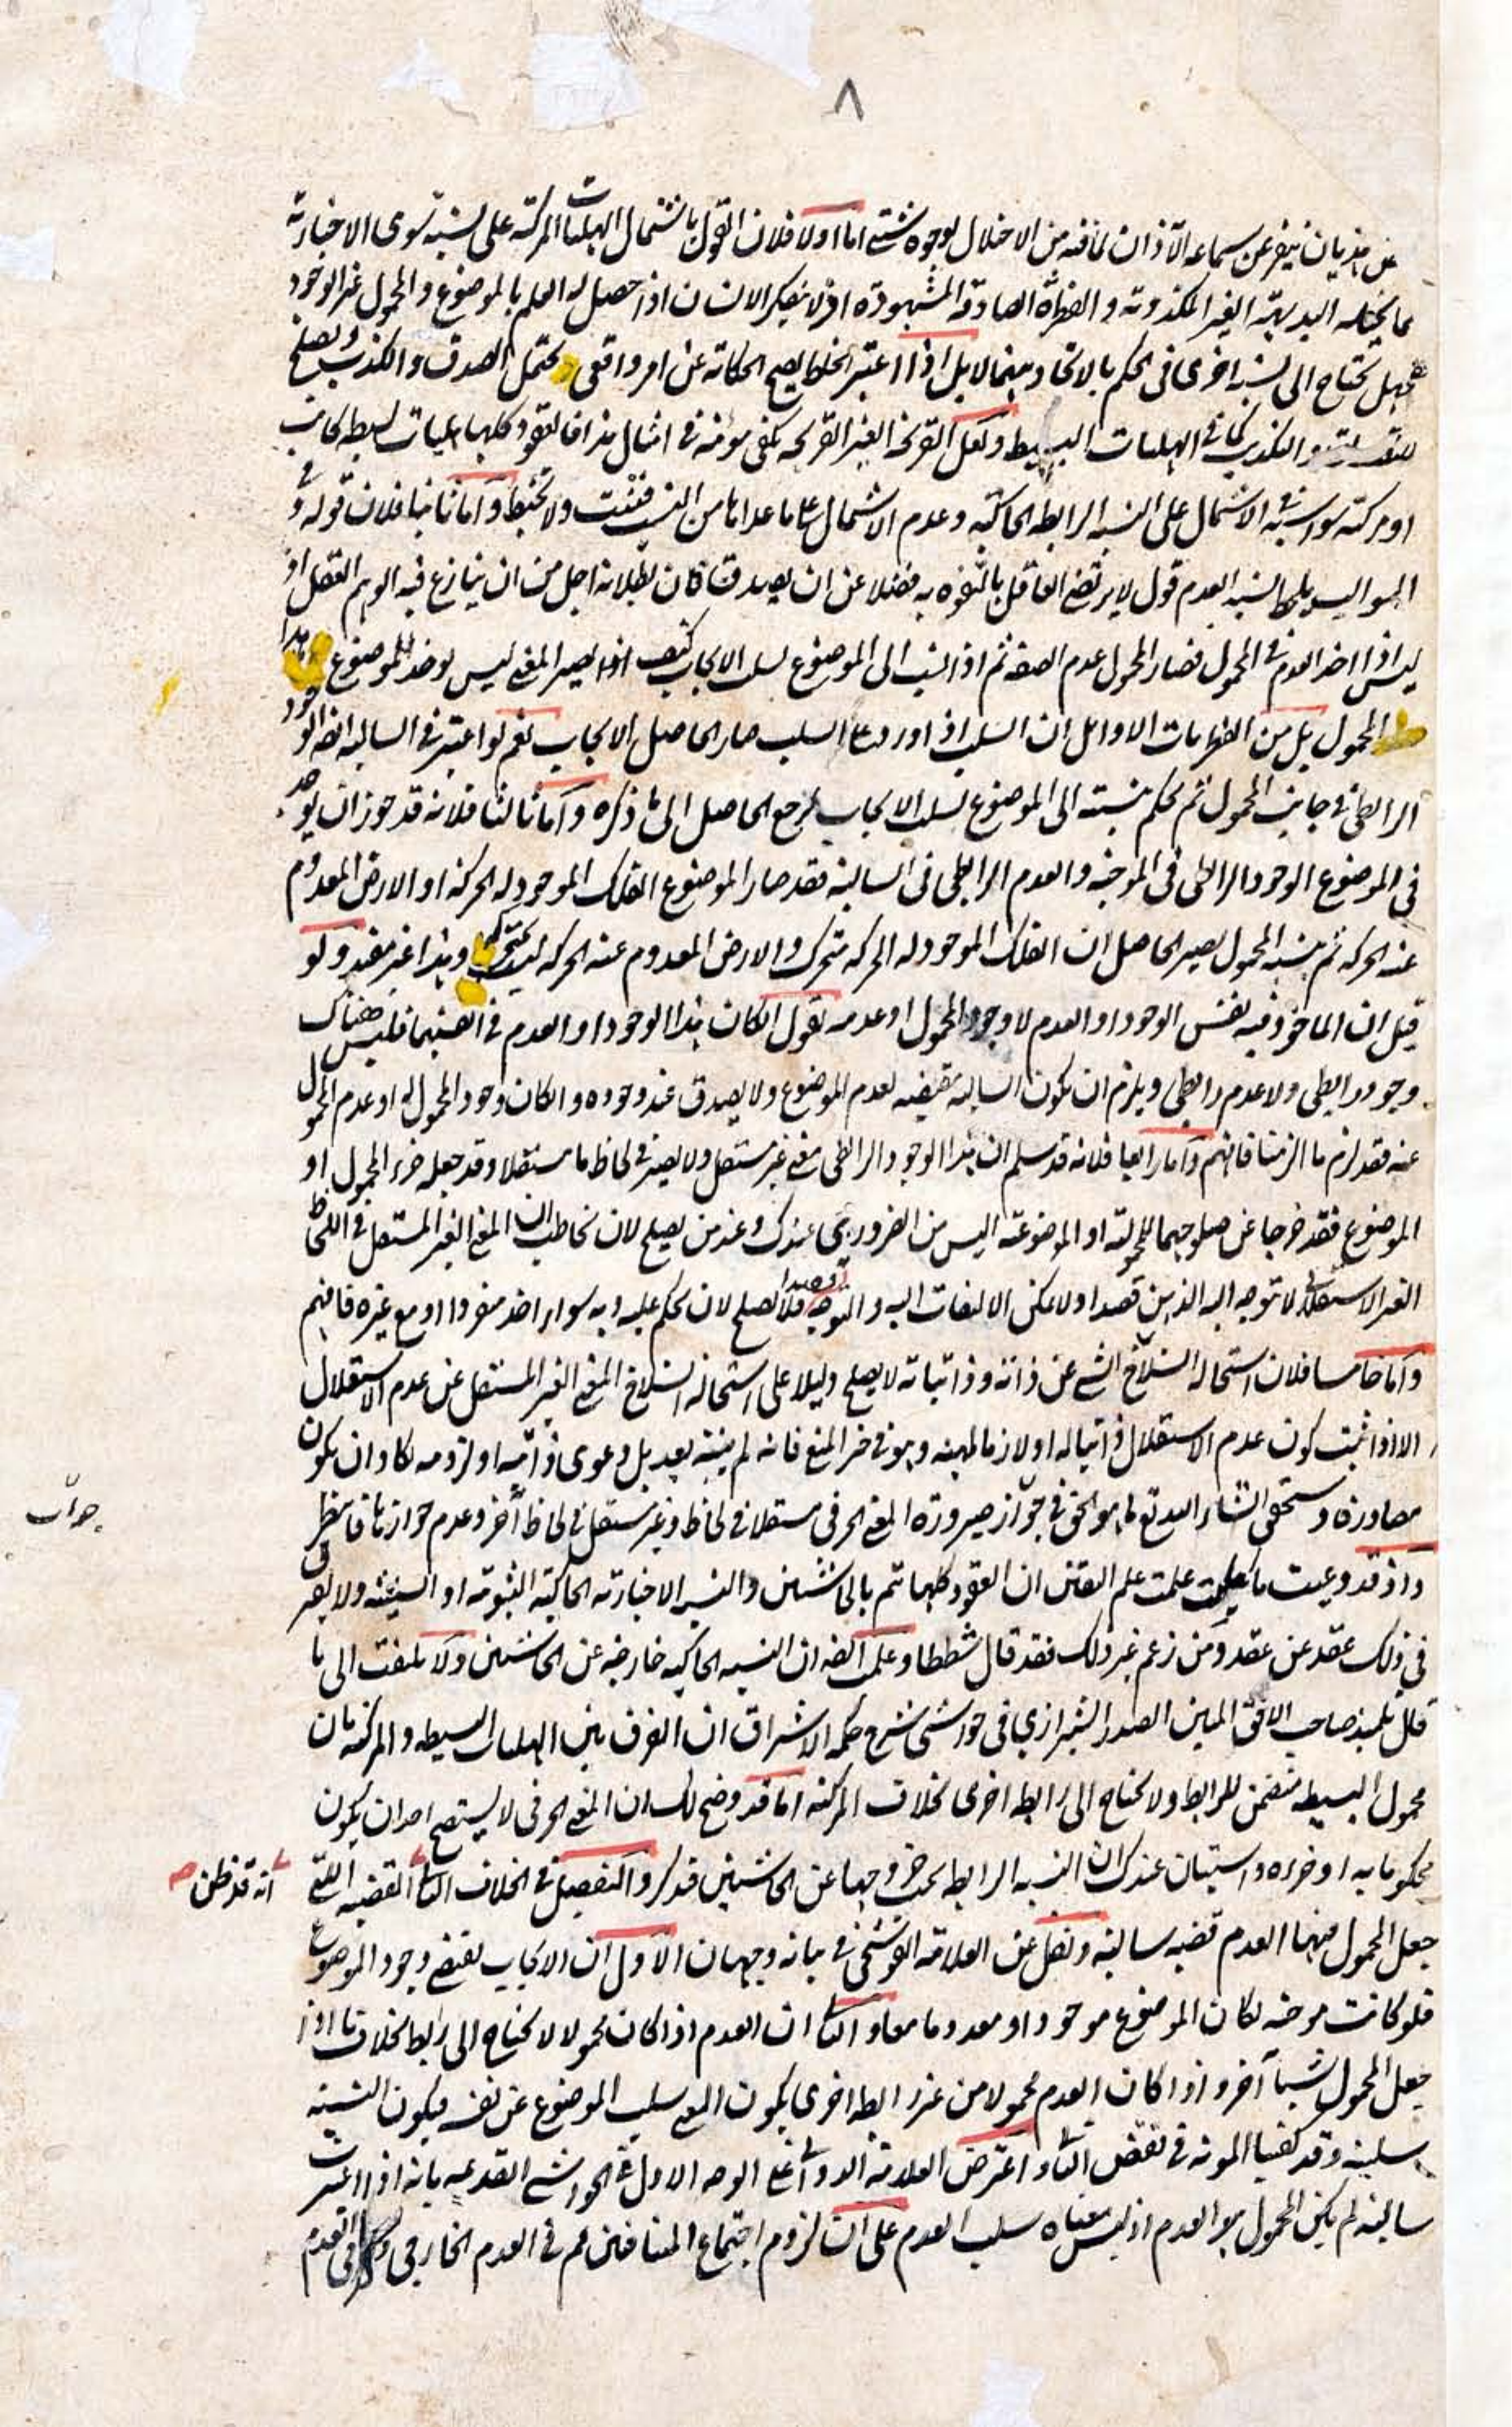 ٨
عن هذيان ينفر عن سماعه الآذان لما فيه من الاختلال لوجوه شتى اما اولا فلان القول باشتمال الهليات المركبة على نسبة سوى الاخبارية
مما يحيله البديهة الغير المكذوبة والفطرة الصادقة المشهودة اذ لا ينكر الانسان اذا حصل له العلم بالموضوع والمحمول غير الوجود
هل يحتاج الى نسبة اخرى فى الحكم بالاتحاد بينهما لا بل اذا اعتبر الخلط يصح الحكاية عن امر واقعى ويحتمل الصدق والكذب ويصلح
والتكذيب كما فى الهليات البسيطة ولعل القريحة الغير القريحة يكفى مؤنة فى امثال هذا فالعقود كلها هليات بسيطة كانت
او مركبة سواسية فى الاشتمال على النسبة الرابطة الحاكية وعدم الاشتمال على ما عداها من النسب فتثبت ولا تخبط واما ثانيا فلان قوله
السوالب يلحظ النسبة العدم قول لا يرتضى العاقل بالتفوه به فضلا عن ان يصدق فان بطلانه اجل من ان ينازع فيه الوهم العقل اذ
ليس اذا اخذ العدم فى المحمول فصار المحمول عدم الصفة ثم اذا نسب الى الموضوع بسلب الايجاب كيف اذا يصير المعنى ليس يوجد للموضوع هذا
المحمول بل من الفطريات الاوائل ان السلب اذا ورد على السلب صار الحاصل الايجاب نعم لو اعتبر فى السالبة ايضا الوجود
الرابطى فى جانب المحمول ثم يحكم بنسبته الى الموضوع بسلب الايجاب لرجع الحاصل الى ما ذكره واما ثالثا فلانه قد جوز ان يوخذ
فى الموضوع الوجود الرابطى فى الموجبة والعدم الرابطى فى السالبة فقد صار الموضوع الفلك الموجود له الحركة او الارض المعدوم
عنه الحركة ثم بنسبة المحمول يصير الحاصل ان الفلك الموجود له الحركة متحرك والارض المعدوم عنه الحركة ليست بمتحركة وهذا غير مفيد ولو
قيل ان الماخوذ فيه نفس الوجود او العدم لا وجود المحمول او عدمه نقول ان كان هذا الوجود او العدم فى انفسهما فليس هناك
وجود رابطى ولا عدم رابطى ويلزم ان يكون السالبة مقتضية لعدم الموضوع ولا يصدق عند وجوده وان كان وجود المحمول له او عدم المحمول
عنه فقد لزم ما الزمنا فافهم واما رابعا فلانه قد سلم ان هذا الوجود الرابطى معنى غير مستقل ولا يصير فى لحاظ ما مستقلا وقد جعله جزء المحمول او
الموضوع فقد خرجا عن صلوحهما للمحمولية او الموضوعية اليس من الضرورى عندك وعند من يصلح لان تخاطب ان المعنى الغير المستقل فى اللحاظ
الغير الاستقلالى لا توجه اليه الذهن قصدا ولا يمكن الالتفات اليه والتوجه قصدا فلا يصلح لان يحكم عليه وبه سواء اخذ منفردا او مع غيره فافهم
واما خامسا فلان استحالة انسلاخ الشى عن ذاته وذاتياته لا يصلح دليلا على استحالة انسلاخ المعنى الغير المستقل عن عدم الاستقلال
الا اذا ثبت كون عدم الاستقلال ذاتيا له او لازما لمهيته وهو فى حيز المنع فانه لم يبينه بعد بل دعوى ذاتيته او لزومه كاد ان يكون
مصادرة وستحقق انشاء الله تعالى ما هو الحق فى جواز صيرورة المعنى الحرفى مستقلا فى لحاظ وغير مستقل فى لحاظ آخر وعدم جوازها فانتظر
جواب
واذ قد وعيت ما علمت علم اليقين ان العقود كلها تتم بالحاشيتين والنسبة الاخبارية الحاكية الثبوتية او السلبية ولا يفرق
فى ذلك عقد عن عقد ومن زعم غير ذلك فقد قال شططا وعلمت ايضا ان النسبة الحاكية خارجة عن الحاشيتين ولا تلتفت الى ما
قال تلميذ صاحب الافق المبين الصدر الشيرازى فى حواشى شرح حكمة الاشراق ان الفرق بين الهليات البسيطة والمركبة بان
محمول البسيطة متضمن للرابطة ولا يحتاج الى رابطة اخرى بخلاف المركبة اما قد وضح لك ان المعنى الحرفى لا يستصح احد ان يكون
محكوما به او جزءه واستبان عندك ان النسبة الرابطة يجب خروجها عن الحاشيتين فتذكر والتفصيل فى الخلاف الثانى القضية التى
انه قد ظن
جعل المحمول فيها العدم قضية سالبة ونقل عن العلامة القوشجى فى بيانه وجهان الاول ان الايجاب يقتضى وجود الموضوع
فلو كانت موجبة لكان الموضوع موجودا ومعدوما معا والثانى ان العدم اذا كان محمولا لا يحتاج الى رابطة بخلاف ما اذا
جعل المحمول شيئا آخر واذا كان العدم محمولا من غير رابطة اخرى يكون المعنى سلب الموضوع عن نفسه فيكون النسبة
سلبية وقد كفينا المونة فى نقض الثانى واعترض العلامة الدوانى على الوجه الاول فى الحواشى القديمة بانه اذا اعتبرت
سالبة لم يكن المحمول هو العدم اذ ليس معناه سلب العدم على ان لزوم اجتماع المتنافيين لم فى العدم الخارجى فى العدم